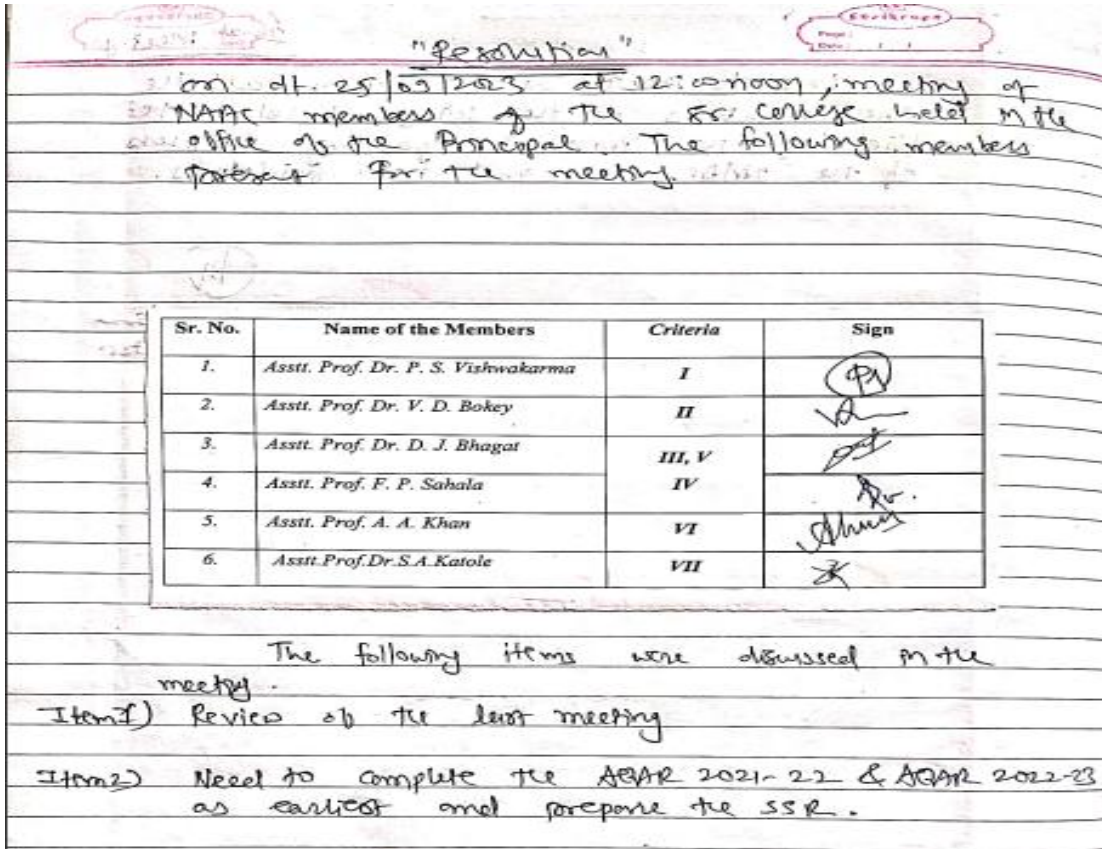 Shrikrupa
Page :
Date : / /
"Resolution"
on dt. 25/09/2023 at 12:00 noon, meeting of
NAAC members of the Sr. College held in the
office of the Principal. The following members
present for the meeting.
Sr. No. Name of the Members Criteria Sign
1. Asstt. Prof. Dr. P. S. Vishwakarma I
2. Asstt. Prof. Dr. V. D. Bokey II
3. Asstt. Prof. Dr. D. J. Bhagat III, V
4. Asstt. Prof. F. P. Sahala IV
5. Asstt. Prof. A. A. Khan VI
6. Asstt.Prof.Dr.S.A.Katole VII
The following items were discussed in the
meeting.
Item1) Review of the last meeting
Item2) Need to complete the AQAR 2021-22 & AQAR 2022-23
as earliest and prepare the SSR.